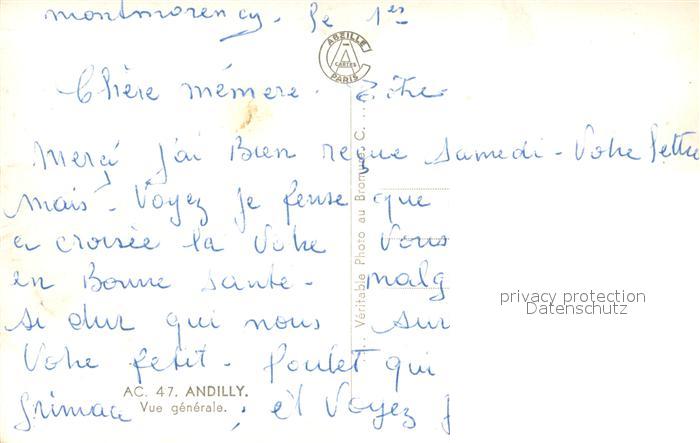 montmorency. le 1er
ABEILLE
CARTES
PARIS
Chère mémere.
Merci j'ai Bien reçue Samedi - Votre lettre
mais. Voyez je pense que
a croisée la Votre Vous
en Bonne Sante - malg
si dur qui nous sur
Votre petit. Poulet qui
grimace ; et Voyez j
Véritable Photo au Bromure. C.
AC. 47. ANDILLY.
Vue générale.
privacy protection
Datenschutz